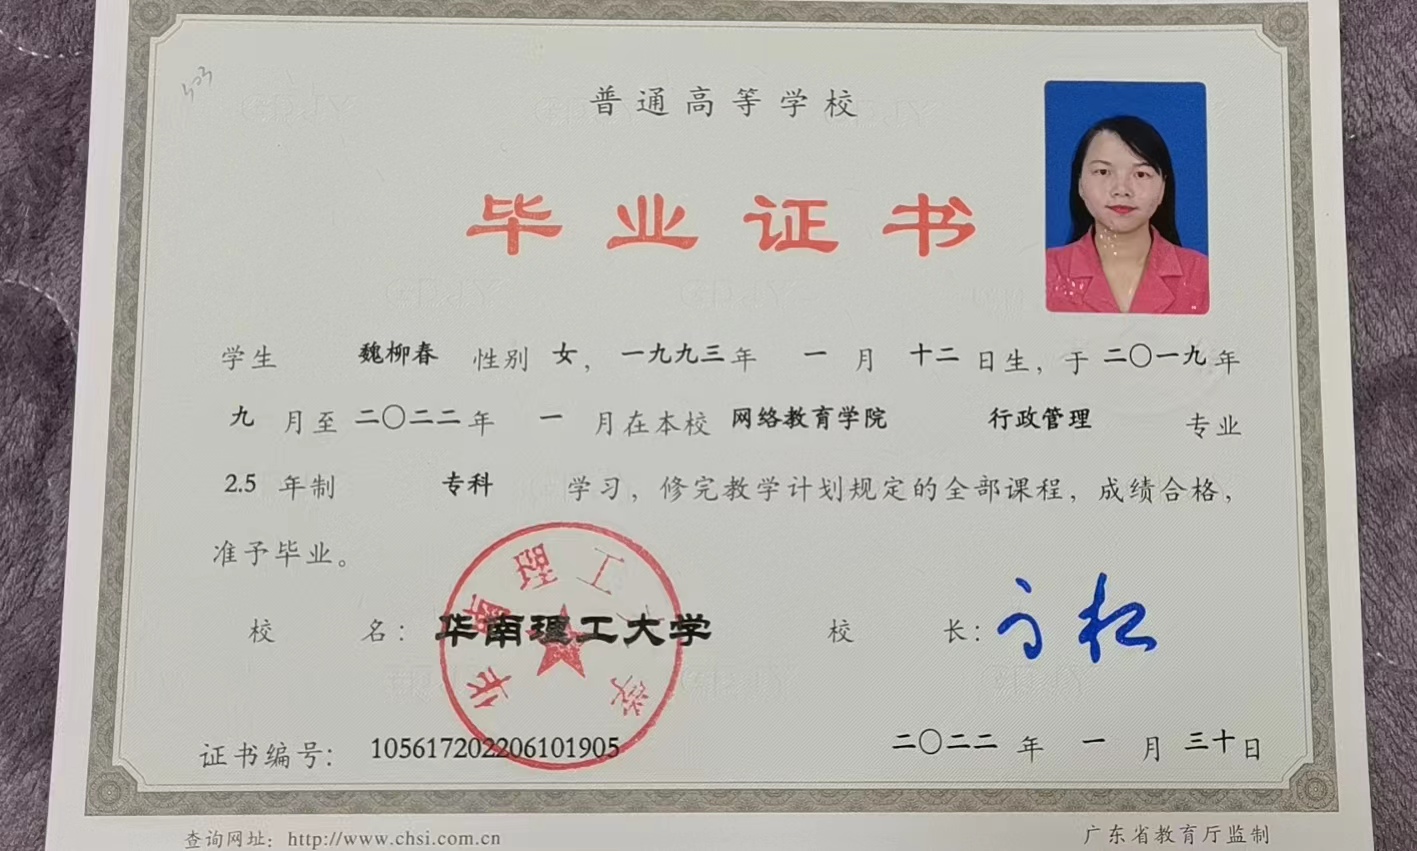 普通高等学校
毕业证书
学生 魏柳春 性别 女，一九九三年 一 月 十二 日生，于 二〇一九年
九 月至 二〇二二年 一 月在本校 网络教育学院 行政管理 专业
2.5 年制 专科 学习，修完教学计划规定的全部课程，成绩合格，
准予毕业。
校 名：华南理工大学 校 长：
华南理工大学
证书编号：105617202206101905 二〇二二 年 一 月 三十日
查询网址：http://www.chsi.com.cn 广东省教育厅监制